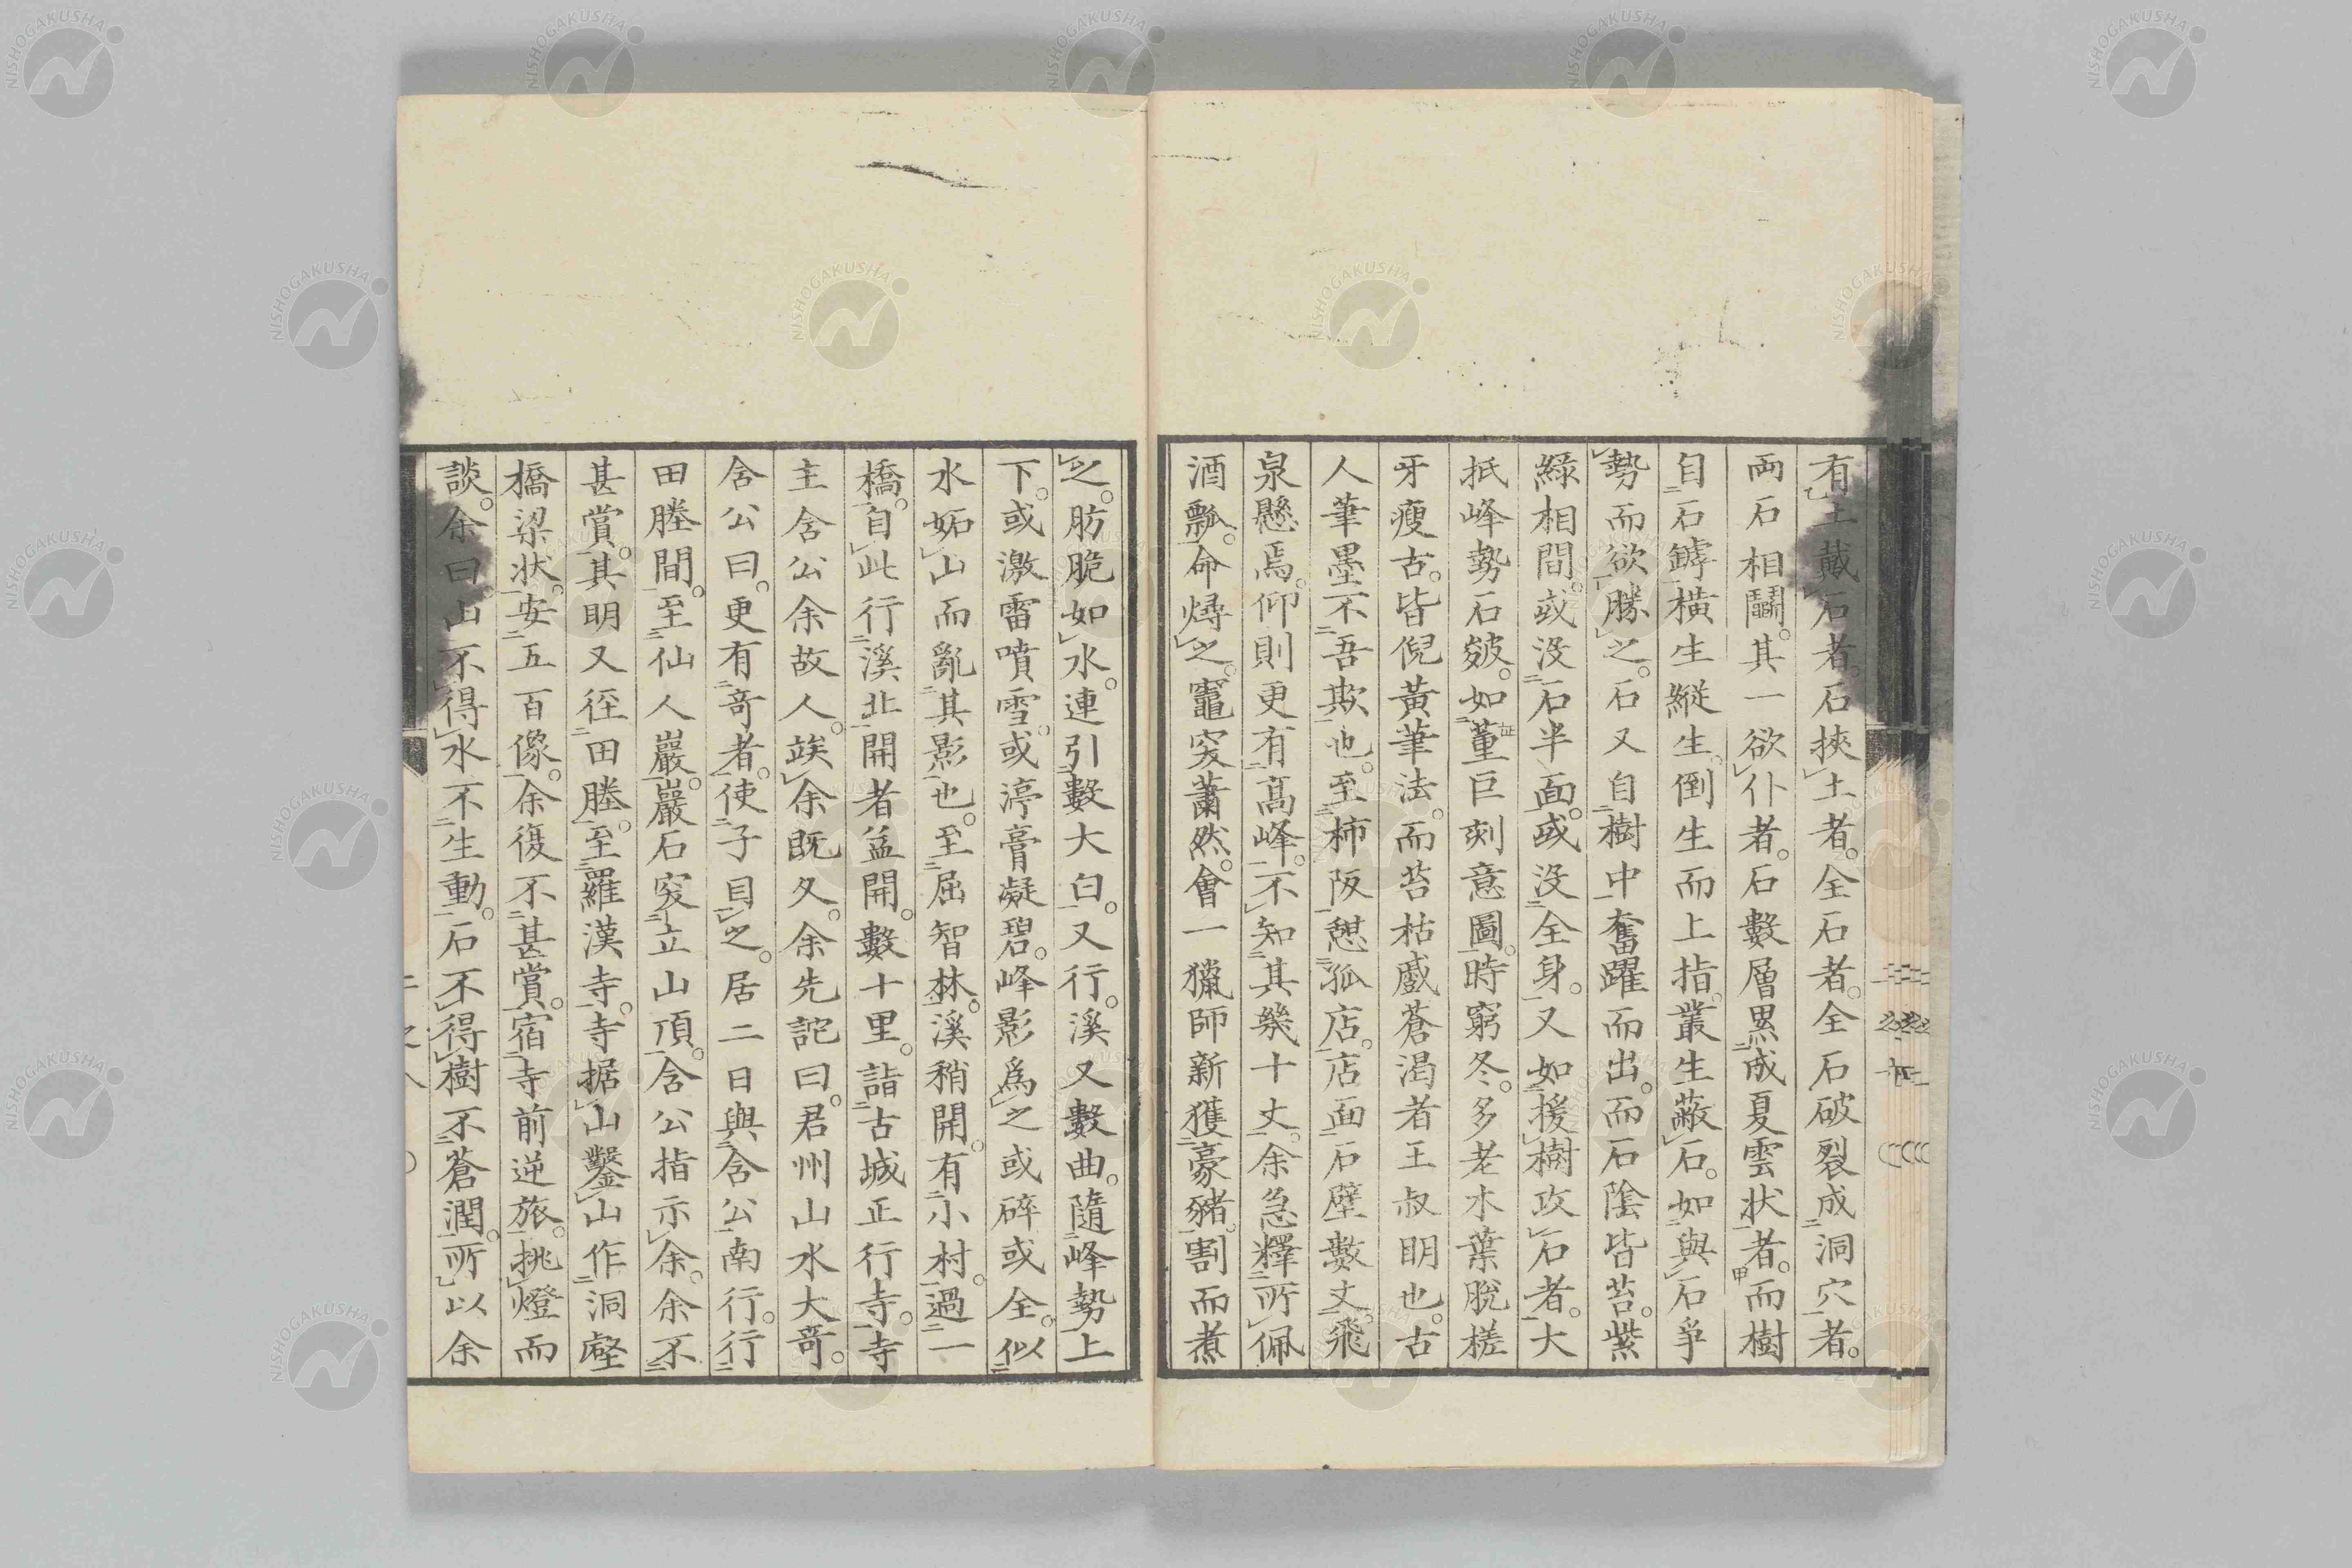 有土戴石者。石挾土者。全石者。全石破裂成洞穴者。
兩石相鬪。其一欲仆者。石數層累成夏雲状者。而樹
自石罅橫生縱生。倒生而上指。叢生蔽石。如與石爭
勢而欲勝之。石又自樹中奮躍而出。而石陰皆苔。紫
綠相間。或没石半面。或没全身。又如援樹攻石者。大
抵峰勢石皴。如董巨刻意圖。時窮冬。多老木葉脫槎
牙瘦古。皆倪黃筆法。而苔枯蘚蒼渴者王叔明也。古
人筆墨不吾欺也。至柿阪憩孤店。店面石壁數丈飛
泉懸焉。仰則更有高峰。不知其幾十丈。余急釋所佩
酒瓢。命燖之。竈突蕭然。會一獵師新獲豪豬。割而煮
之。肪脆如水。連引數大白。又行。溪又數曲。隨峰勢上
下。或激雷噴雪。或渟膏凝碧。峰影為之或碎或全。似
水妬山而亂其影也。至屈智林。溪稍開。有小村。過一
橋。自此行溪北開者益開。數十里。詣古城正行寺。寺
主含公余故人。竢余既久。余先詑曰。君州山水大奇。
含公曰。更有奇者。使子目之。居二日與含公南行。行
田塍間。至仙人巖。巖石突立山頂。含公指示余。余不
甚賞。其明又徑田塍。至羅漢寺。寺据山鑿山作洞壑
橋梁状。安五百像。余復不甚賞。宿寺前逆旅。挑燈而
談。余曰山不得水不生動。石不得樹不蒼潤。所以余